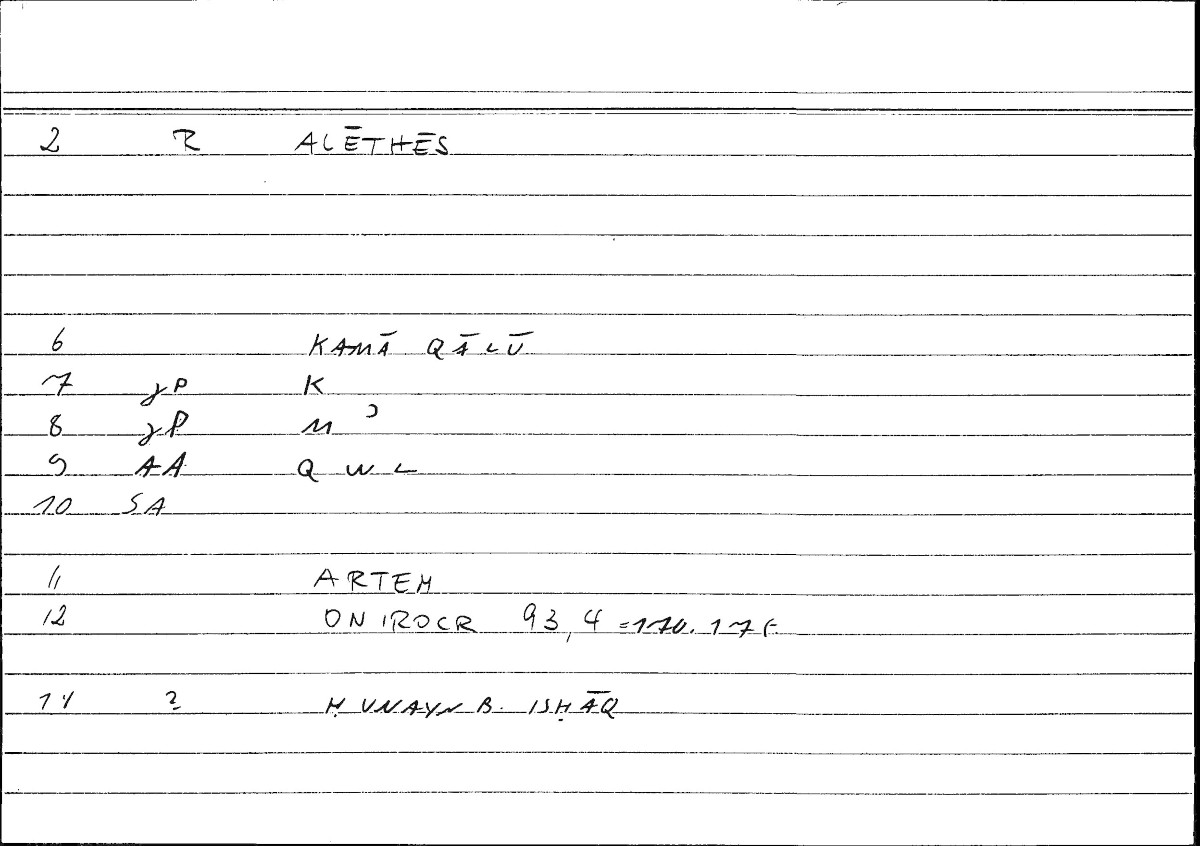 2 R ALĒTHĒS
6 KAMĀ QĀLŪ
7 γP K
8 γP M ʾ
9 AA Q W L
10 SA
11 ARTEM
12 ONIROCR 93,4 =170.17f.
14 ? ḤUNAYN B. ISḤĀQ